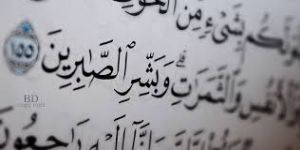 بِشَيْءٍ مِنَ الْخَوْفِ
وَالْأَنْفُسِ وَالثَّمَرَاتِ ۗ وَبَشِّرِ الصَّابِرِينَ ١٥٥
وَإِنَّا إِلَيْهِ رَاجِعُونَ
BD